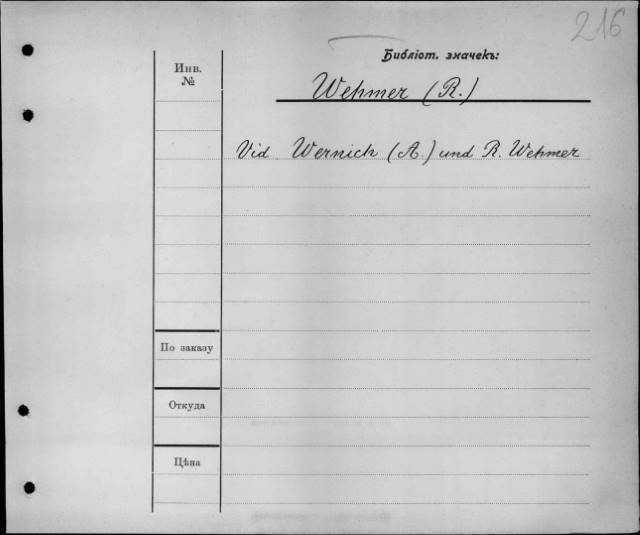 216
Библіот. значекъ:
Инв.
№
Wehmer (R.)
Vid Wernich (A.) und R. Wehmer
По заказу
Откуда
Цѣна